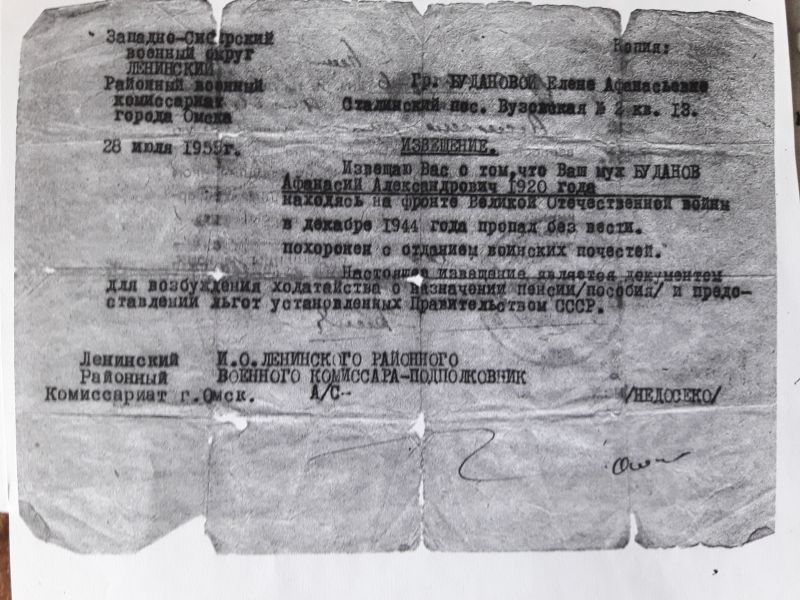 Западно-Сибирский
военный округ
ЛЕНИНСКИЙ
Районный военный
комиссариат
города Омска
28 июля 1959г.
Копия:
Гр. БУДАНОВОЙ Елене Афанасьевне
Сталинский пос. Вузовская № 2 кв. 13.
ИЗВЕЩЕНИЕ.
Извещаю Вас о том,что Ваш муж БУДАНОВ
Афанасий Александрович 1920 года
находясь на фронте Великой Отечественной войны
в декабре 1944 года пропал без вести.
похоронен с отданием воинских почестей.
Настоящее извещание является документом
для возбуждения ходатайства о назначении пенсии/пособия/ и предо-
ставлении льгот установленных Правительством СССР.
Ленинский
Районный
Комиссариат г.Омск.
И.О.ЛЕНИНСКОГО РАЙОННОГО
ВОЕННОГО КОМИССАРА-ПОДПОЛКОВНИК
А/С--
/НЕДОСЕКО/